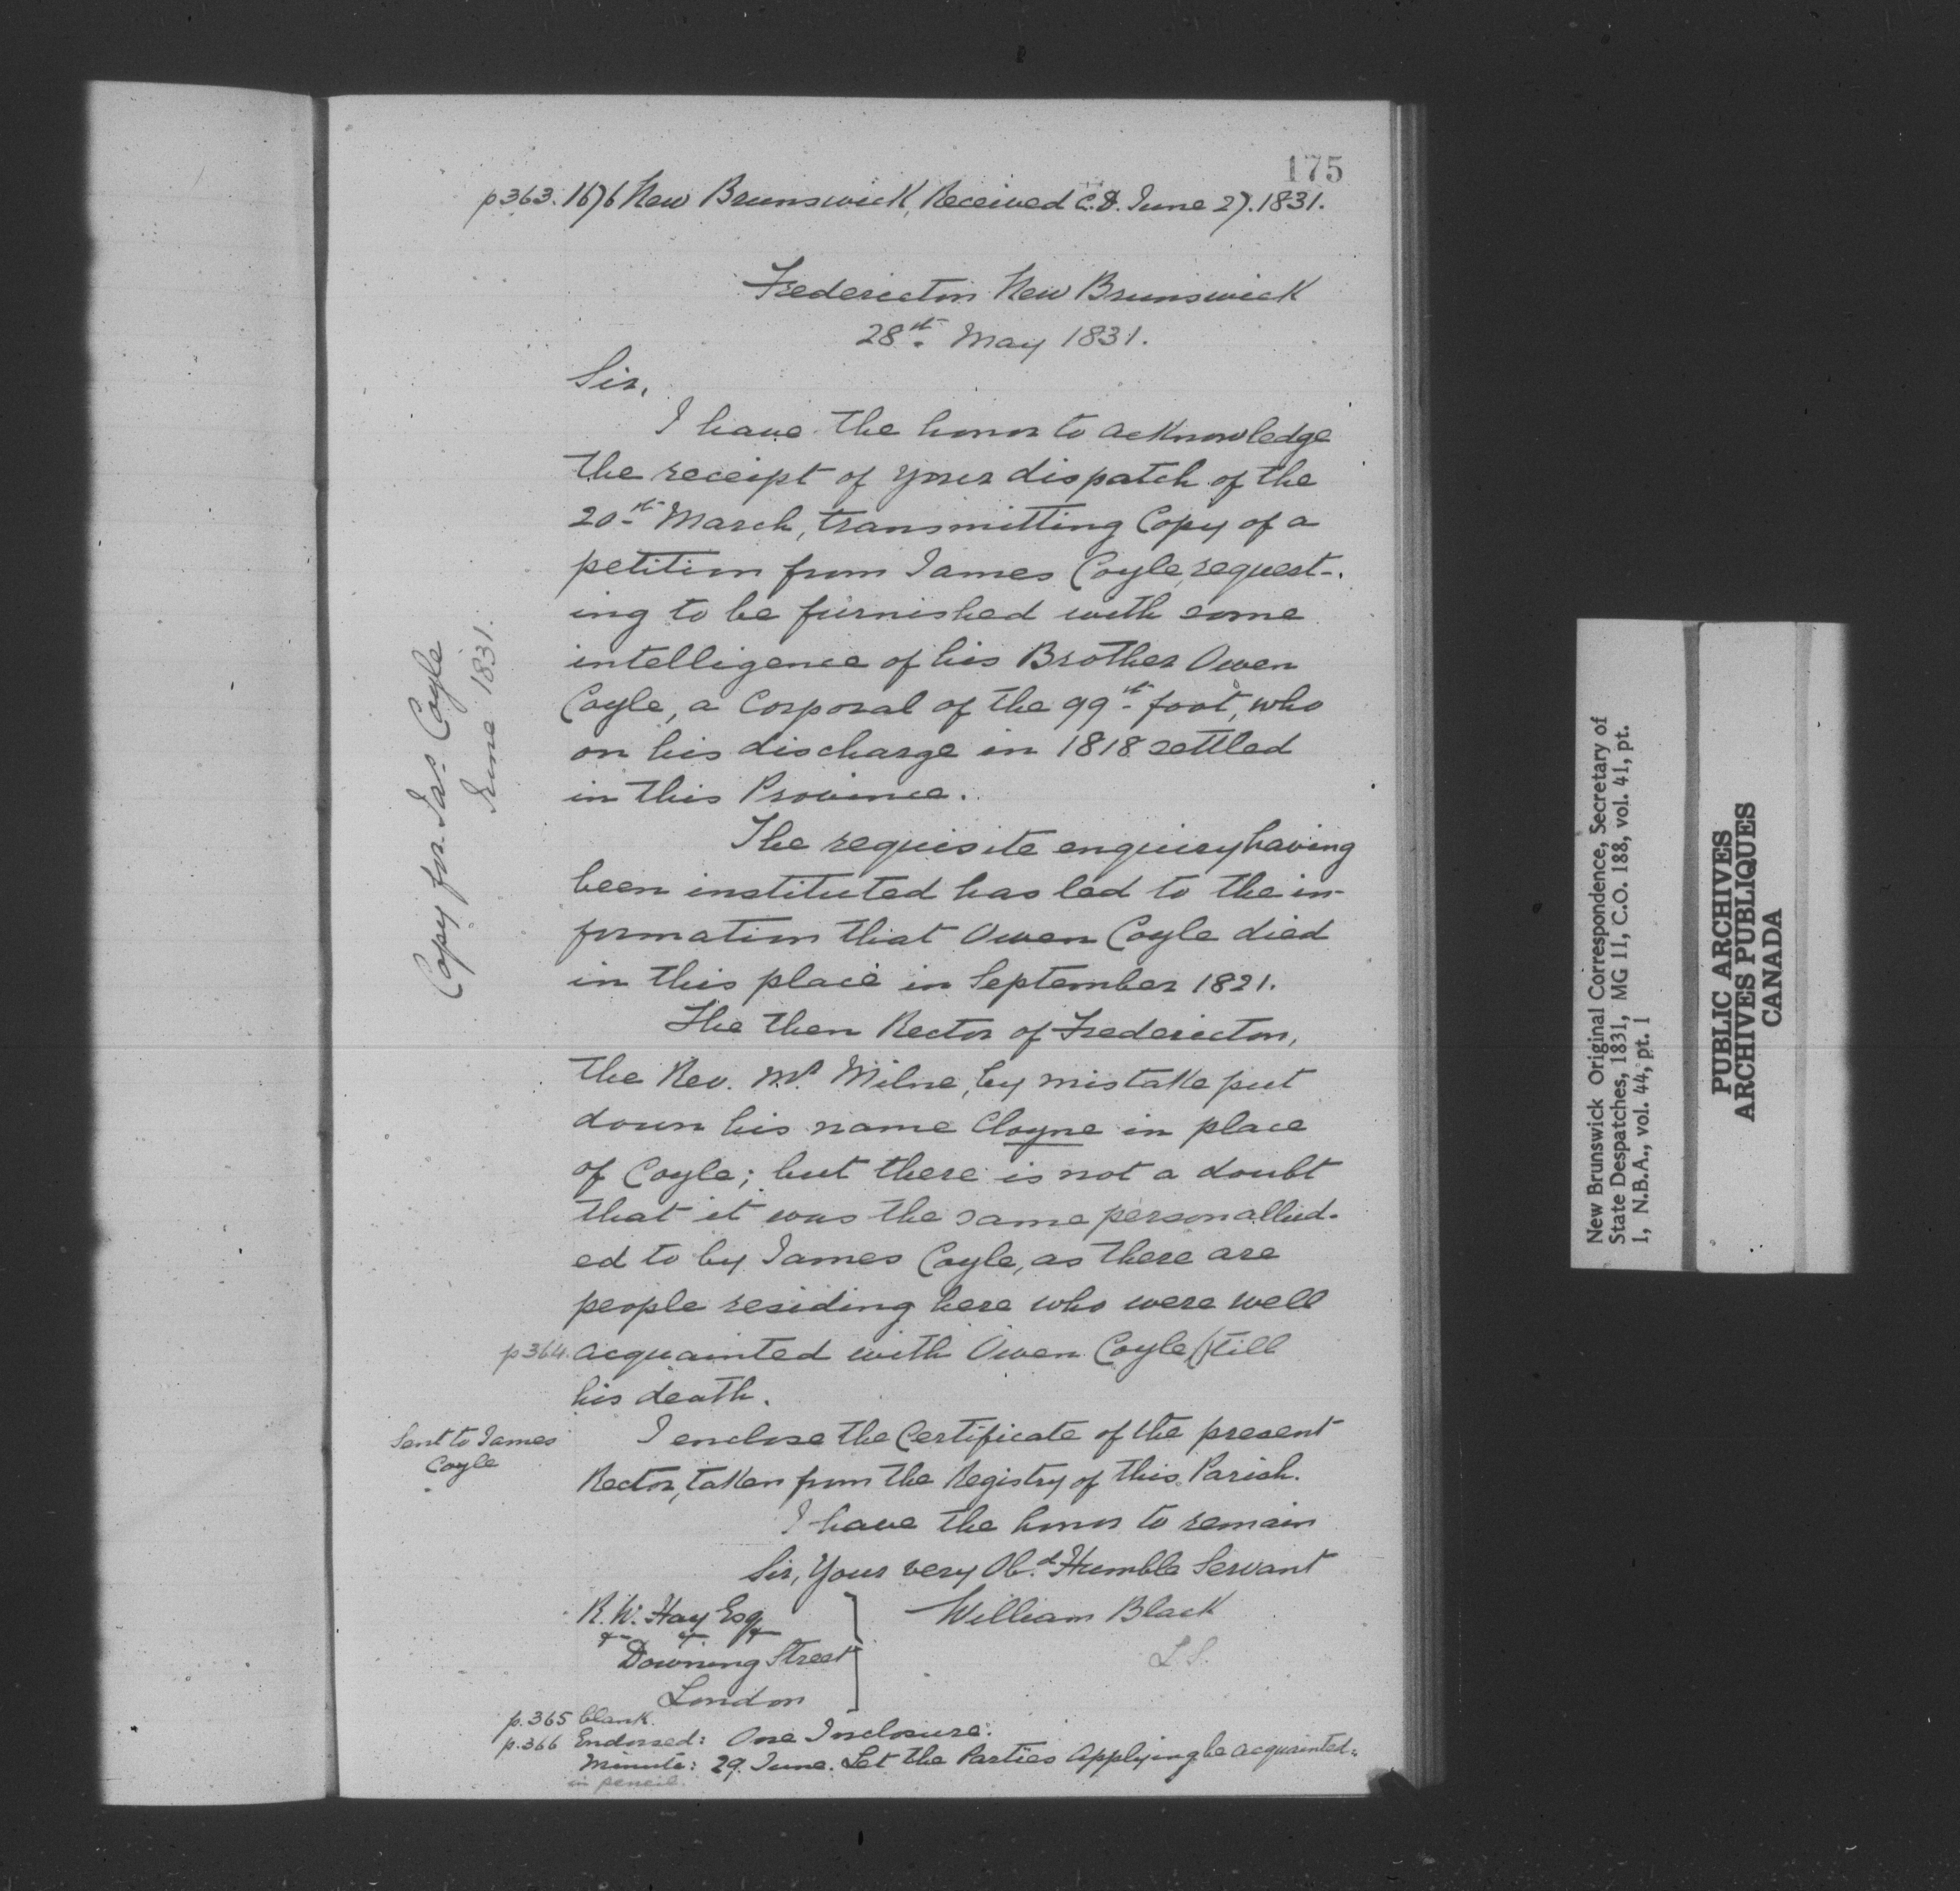 175
p363. 1676 New Brunswick, Received C.D. June 27. 1831.
Fredericton New Brunswick
28th May 1831.
Sir,
I have the honor to acknowledge
the receipt of your dispatch of the
20th March, transmitting Copy of a
petition from James Coyle, request-
ing to be furnished with some
intelligence of his Brother Owen
Coyle, a Corporal of the 99th foot, who
on his discharge in 1818 settled
in this Province.
The requisite enquiry having
been instituted has led to the in-
formation that Owen Coyle died
in this place in September 1821.
The then Rector of Fredericton,
the Rev. Mr. Milne, by mistake put
down his name Cloyne in place
of Coyle; but there is not a doubt
that it was the same person allud-
ed to by James Coyle, as there are
people residing here who were well
p364. acquainted with Owen Coyle () till
his death.
Sent to James
Coyle
I enclose the Certificate of the present
Rector, taken from the Registry of this Parish.
I have the honor to remain
Sir, Your very Obd. Humble Servant
William Black
L S.
R. W. Hay Esq
&- &- &-
Downing Street
London
p.365 blank.
p.366 Endorsed: One Inclosure.
Minute: 29. June. Let the Parties Applying be acquainted.
in pencil.
Copy for Jas. Coyle
June 1831.
New Brunswick Original Correspondence, Secretary of
State Despatches, 1831, MG 11, C.O. 188, vol. 41, pt.
1, N.B.A., vol. 44, pt. 1
PUBLIC ARCHIVES
ARCHIVES PUBLIQUES
CANADA